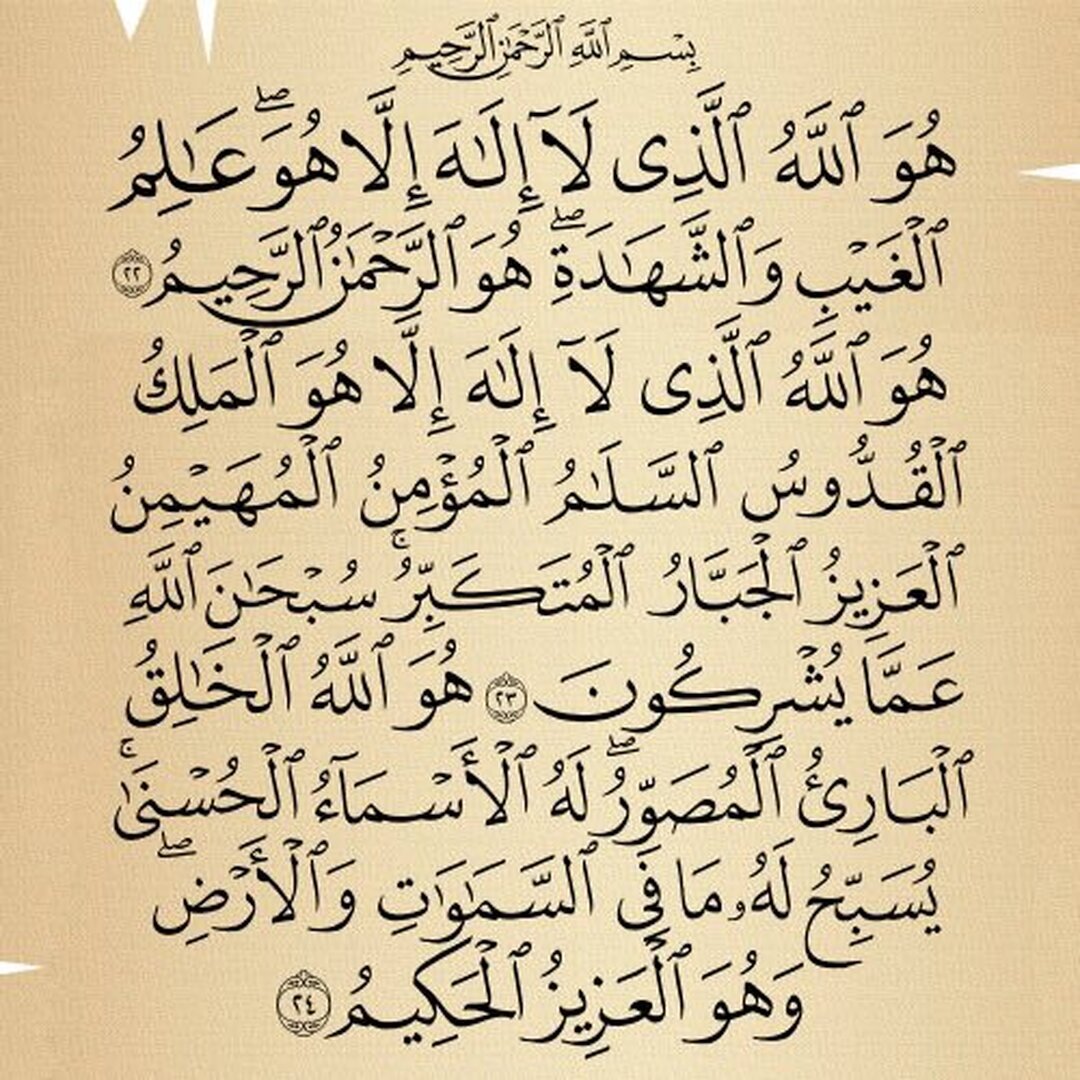 بِسْمِ ٱللَّهِ ٱلرَّحْمَٰنِ ٱلرَّحِيمِ
هُوَ ٱللَّهُ ٱلَّذِى لَآ إِلَٰهَ إِلَّا هُوَ ۖ عَٰلِمُ
ٱلْغَيْبِ وَٱلشَّهَٰدَةِ ۖ هُوَ ٱلرَّحْمَٰنُ ٱلرَّحِيمُ ٢٢
هُوَ ٱللَّهُ ٱلَّذِى لَآ إِلَٰهَ إِلَّا هُوَ ٱلْمَلِكُ
ٱلْقُدُّوسُ ٱلسَّلَٰمُ ٱلْمُؤْمِنُ ٱلْمُهَيْمِنُ
ٱلْعَزِيزُ ٱلْجَبَّارُ ٱلْمُتَكَبِّرُ ۚ سُبْحَٰنَ ٱللَّهِ
عَمَّا يُشْرِكُونَ ٢٣ هُوَ ٱللَّهُ ٱلْخَٰلِقُ
ٱلْبَارِئُ ٱلْمُصَوِّرُ ۖ لَهُ ٱلْأَسْمَآءُ ٱلْحُسْنَىٰ ۚ
يُسَبِّحُ لَهُۥ مَا فِى ٱلسَّمَٰوَٰتِ وَٱلْأَرْضِ ۖ
وَهُوَ ٱلْعَزِيزُ ٱلْحَكِيمُ ٢٤